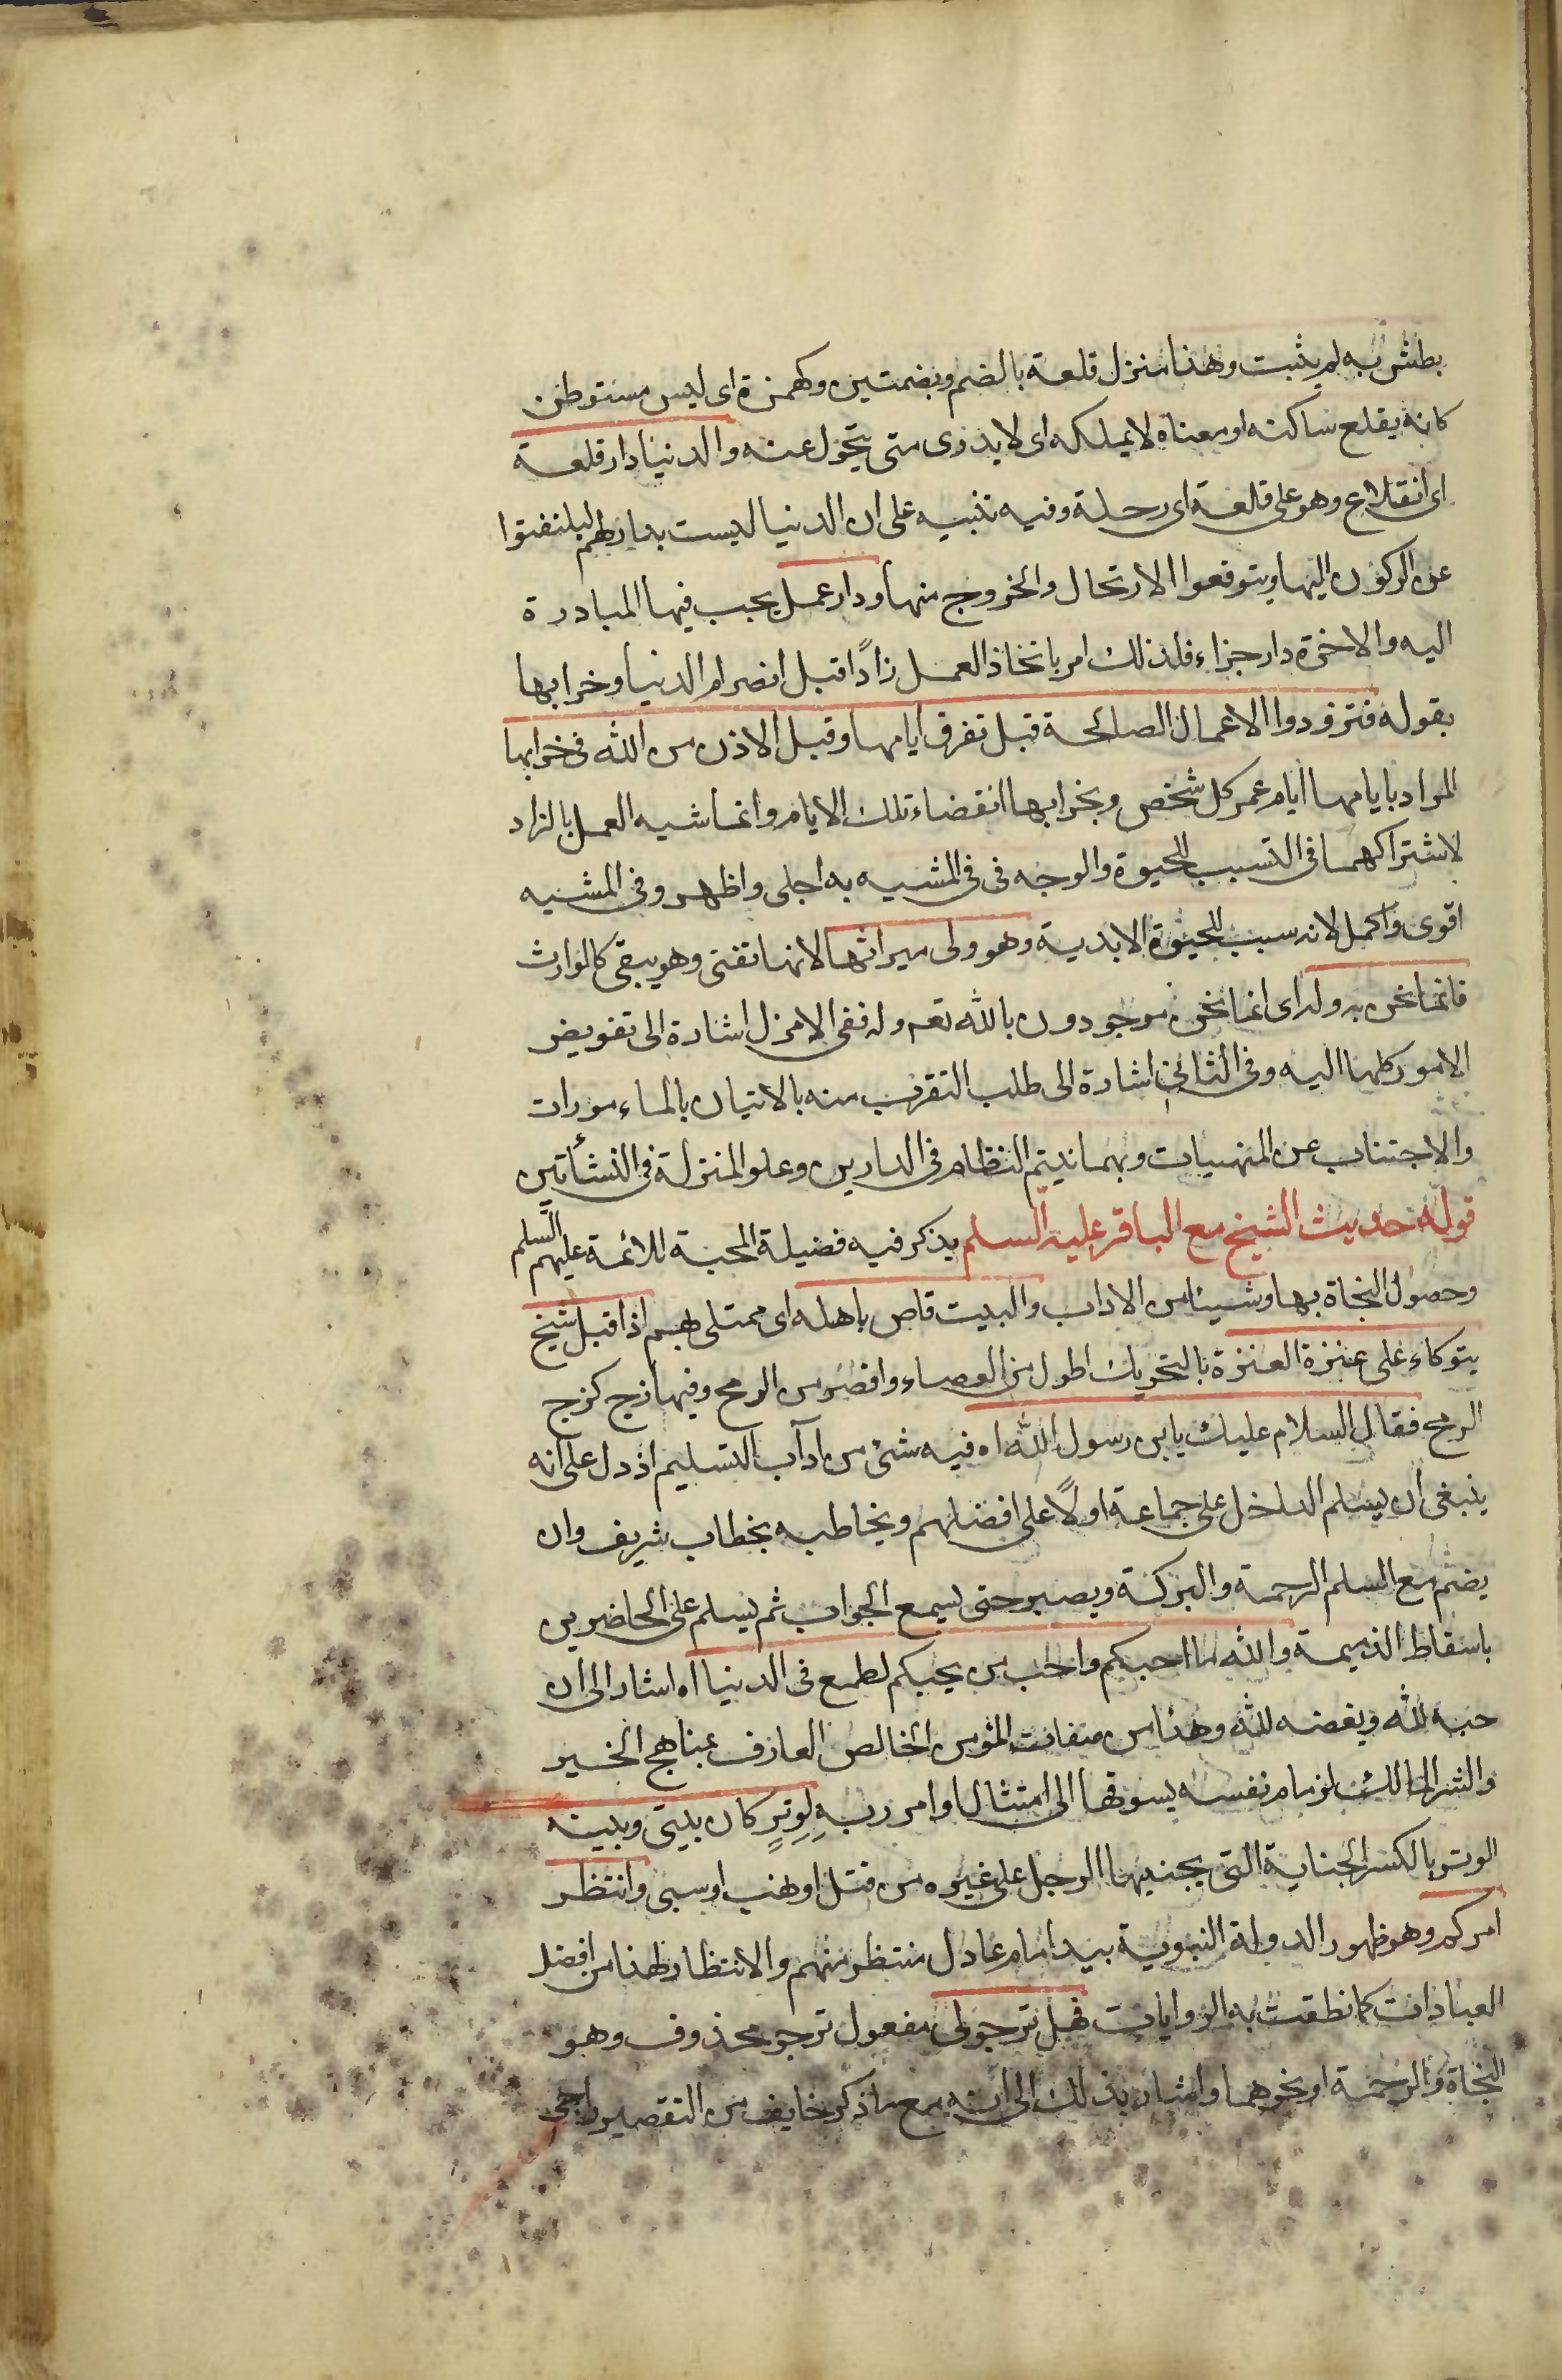 بطش به لم يثبت وهذا منزل قلعة بالضم وبضمتين وكهمزة اى ليس مستوطن
كانه يقلع ساكنه او معناه لا يملكه اى لا يدرى متى يتحول عنه والدنيا دار قلعة
اى انقلاع وهو على قلعة اى رحلة وفيه تنبيه على ان الدنيا ليست بدار لهم ليلتفتوا
عن الركون اليها ويتوقعوا الارتحال والخروج منها ودار عمل يجب فيها المبادرة
اليه والاخرة دار جزاء فلذلك امر باتخاذ العمل زادًا قبل انصرام الدنيا وخرابها
بقوله فتزودوا الاعمال الصالحة قبل تفرق ايامها وقبل الاذن من الله فى خرابها
المراد بايامها ايام عمر كل شخص وبخرابها انقضاء تلك الايام وانما شبه العمل بالزاد
لاشتراكهما فى التسبب للحيوة والوجه فى فى المشبه به اجلى واظهر وفى المشبه
اقوى واكمل لانه سبب للحيوة الابدية وهو ولى ميراثها لانها تفنى وهو يبقى كالوارث
فانما نحن به وله اى انما نحن موجودون بالله تعه وله ففى الامزل اشارة الى تفويض
الامور كلها اليه وفى الثانى اشارة الى طلب التقرب منه بالاتيان بالماءمورات
والاجتناب عن المنهيات وبهما يتم النظام فى الدارين وعلو المنزلة فى النشأتين
قوله حديث الشيخ مع الباقر عليه السلم يذكر فيه فضيلة المحبة للائمة عليهم السلم
وحصول النجاة بها وشيئا من الاداب والبيت قاص باهله اى ممتلى بهم اذا قبل شيخ
يتوكاء على عنزة العنزة بالتحريك اطول من العصاء واقصر من الرمح وفيها زج كزج
الرمح فقال السلام عليك يابن رسول الله اه فيه شئ من ادآب التسليم اذ دل على انه
ينبغى ان يسلم الداخل على جماعة اولًا على افضلهم ويخاطبه بخطاب شريف وان
يضم مع السلم الرحمة والبركة ويصبر حتى يسمع الجواب ثم يسلم على الحاضرين
باسقاط الذميمة والله ما احبكم واحب من يحبكم لطمع فى الدنيا اه اشار الى ان
حبه لله وبغضه لله وهذا من صفات المؤمن الخالص العارف بمناهج الخير
والشر المالك لزمام نفسه يسوقها الى امتثال اوامر ربه لِوِترٍ كان بينى وبينه
الوتر بالكسر الجناية التى يجنيها الرجل على غيره من قتل او نهب او سبى وانتظر
امركم وهو ظهور الدولة النبوية بيد امام عادل منتظر منهم والانتظار لهذا من افضل
العبادات كما نطقت به الروايات فهل ترجو لى مفعول ترجو محذوف وهو
النجاة والرحمة او نحوهما واشار بذلك الى انه مع ما ذكر خايف من التقصير راجى